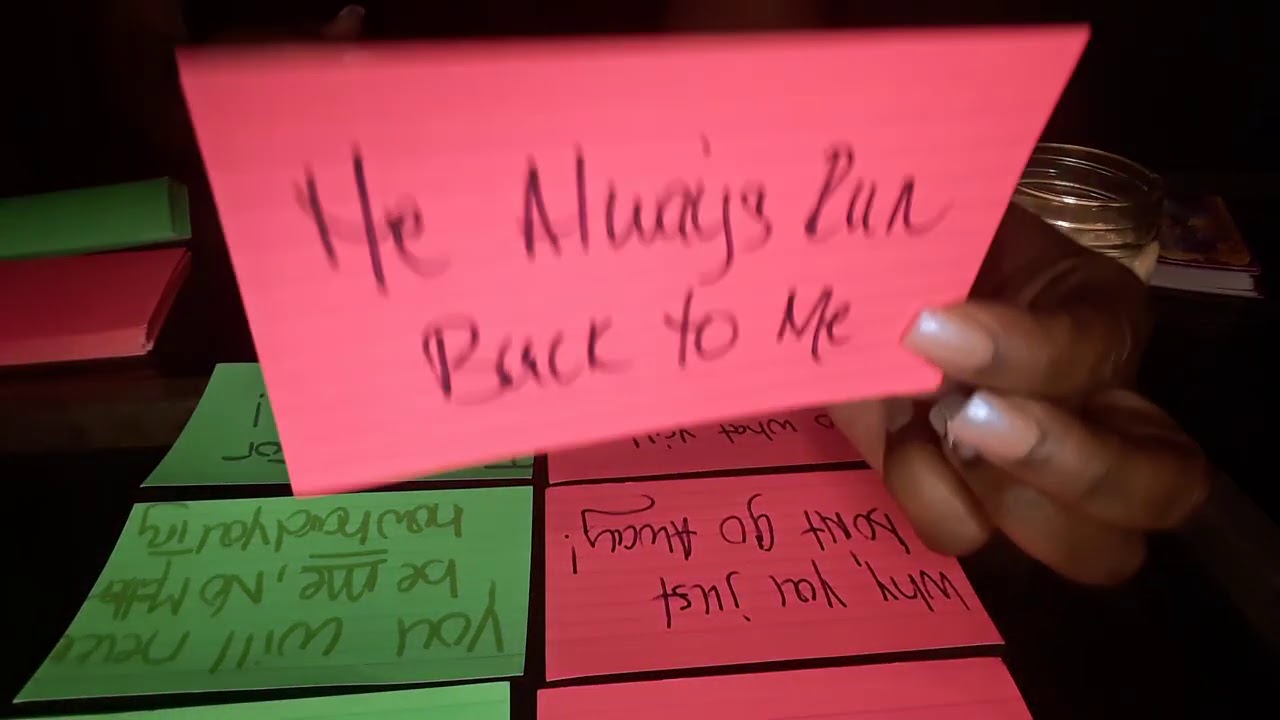 He Always Run
Back to Me
o what you
Why, you just
DONT go Away!
You will never
be me, No Matter
how hard you try
for
!